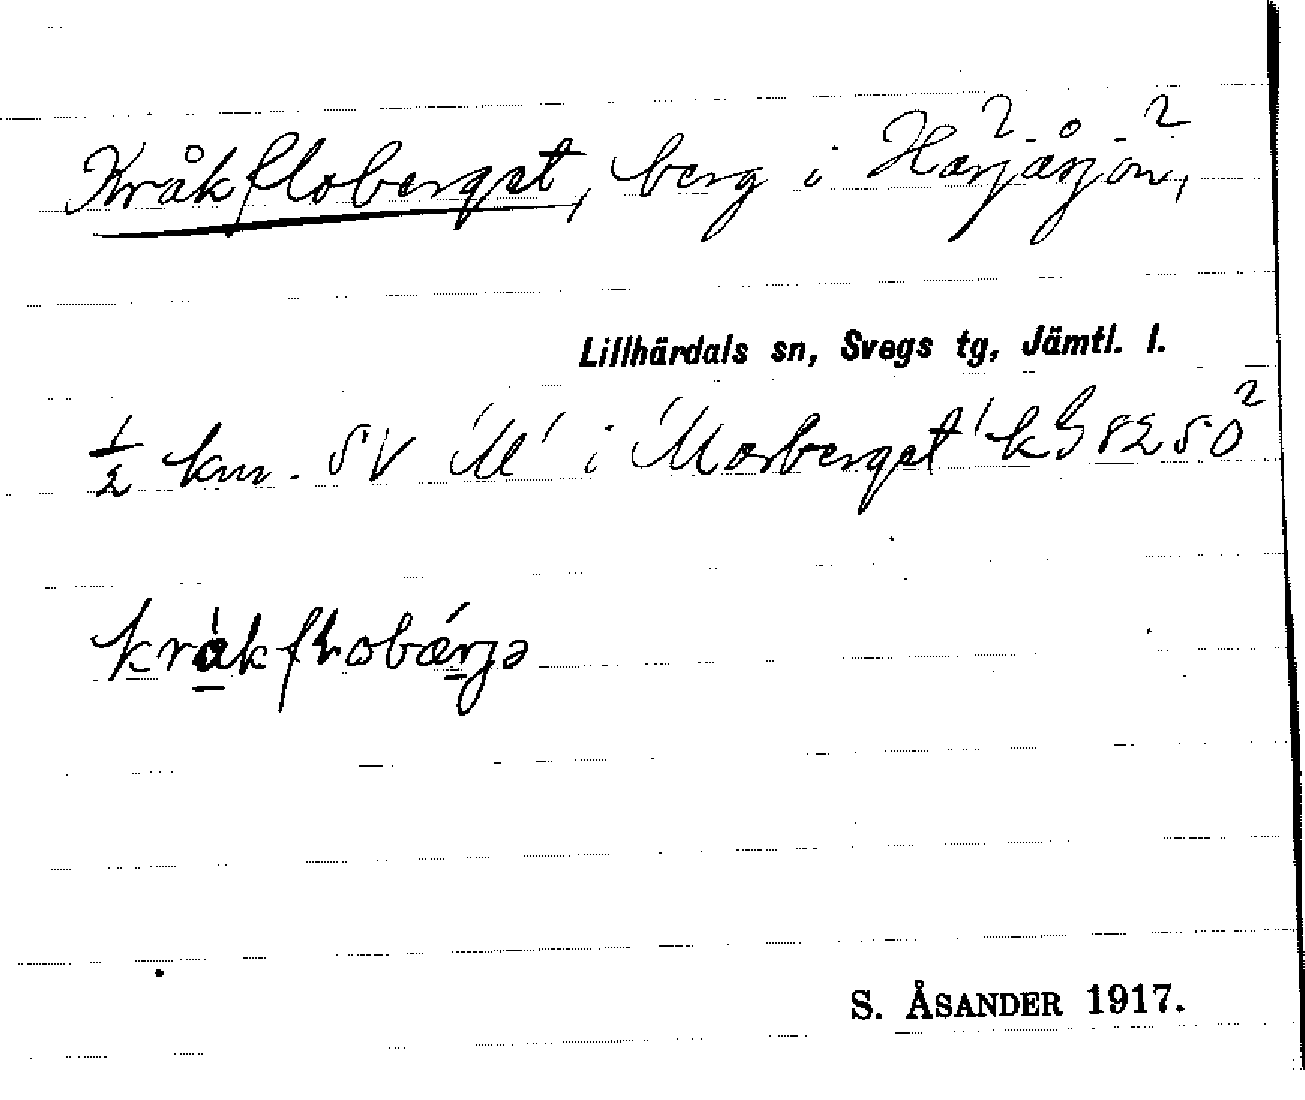 Kråkfloberget, berg i Härjåsjön,
Lillhärdals sn, Svegs tg, Jämtl. l.
½ km. SV 'M' i 'Morberget' kG 8250
kråkfɽobærjə
S. ÅSANDER 1917.